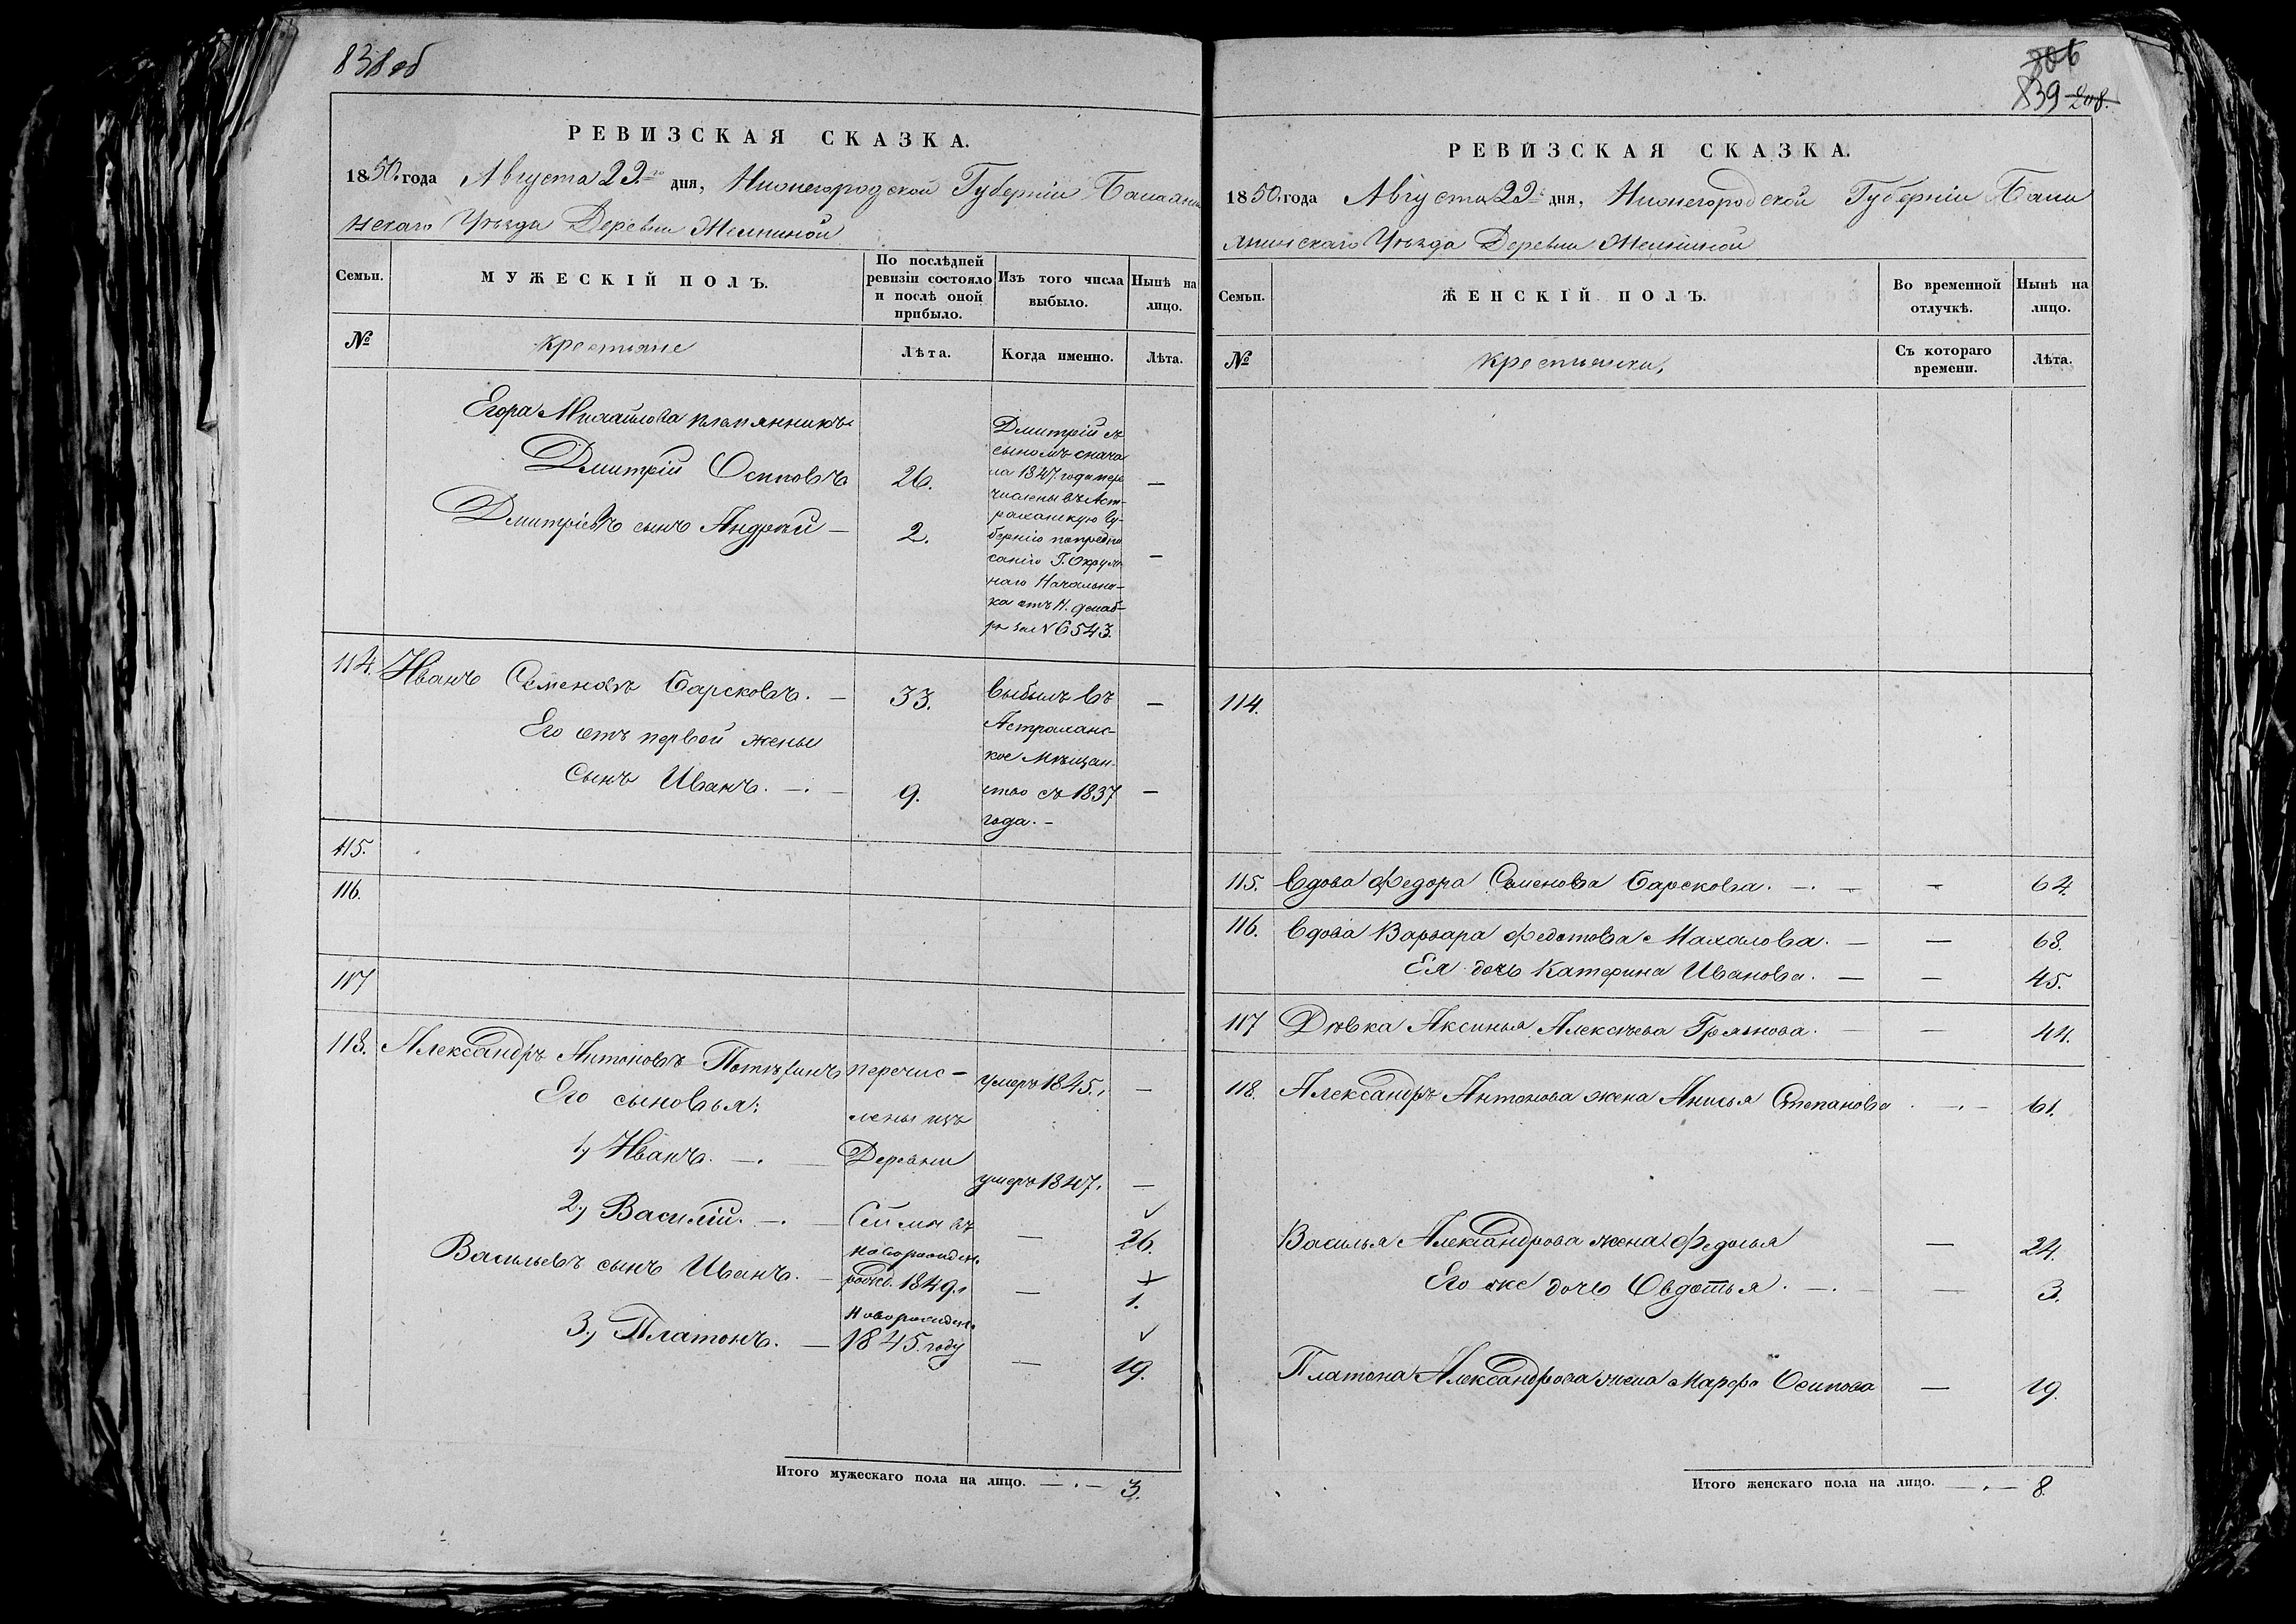 838 об
РЕВИЗСКАЯ СКАЗКА.
1850 года Августа 22го дня, Нижегородской Губерніи Балахни
нскаго Уѣзда Деревни
Семьи.
МУЖЕСКІЙ ПОЛЪ.
По послѣдней ревизіи состояло и послѣ оной прибыло.
Изъ того числа выбыло.
Нынѣ на лицо.
№
крестьяне
Лѣта.
Когда именно.
Лѣта.
Егора Михайлова племянникъ
Дмитрій Осиповъ 26. —
Дмитріевъ сынъ Андрей — 2. —
Дмитрій съ
сыномъ снача
ла 1847. года пере
числены въ Аст-
раханскую Гу-
бернію по предпи
санію Г. Окруж
наго Начальни-
ка отъ 11. декаб-
ря за №6543.
114. Иванъ Семеновъ Барсковъ. — 33. —
Его отъ первой жены
сынъ Иванъ. —. — 9. —
выбылъ въ
Астраханс-
кое Мѣщан-
ство съ 1837
года. —
115.
116.
117
118. Александръ Антоновъ Потехинъ перечис- умеръ 1845. —
Его сыновья: лены изъ
1, Иванъ. —. — Деревни умеръ 1847. —
2, Василій. —. — Сеймы въ — 26.
Васильевъ сынъ Иванъ. — новорожден. рожд. 1849. — 1.
3, Платонъ. — новорожден. 1845. году — 19.
Итого мужескаго пола на лицо. —.— 3.
806
839 208.
РЕВИЗСКАЯ СКАЗКА.
1850 года Августа 22 дня, Нижегородской Губерніи Бала
хнинскаго Уѣзда Деревни
Семьи.
ЖЕНСКІЙ ПОЛЪ.
Во временной отлучкѣ.
Нынѣ на лицо.
№
крестьянки,
Съ котораго времени.
Лѣта.
114.
115. Вдова Федора Семенова Барскова. —. — — 64.
116. Вдова Варвара Федотова Махалова. — — 68.
Ея дочь Катерина Иванова. — — 45.
117 Дѣвка Аксинья Алексѣева Грязнова. — — 44.
118. Александръ Антонова жена Анисья Степанова . —.— 61.
Василья Александрова жена Федосья — 24.
Его же дочь Овдотья. —. — — 3.
Платона Александрова жена Марфа Осипова — 19.
Итого женскаго пола на лицо. —.— 8.